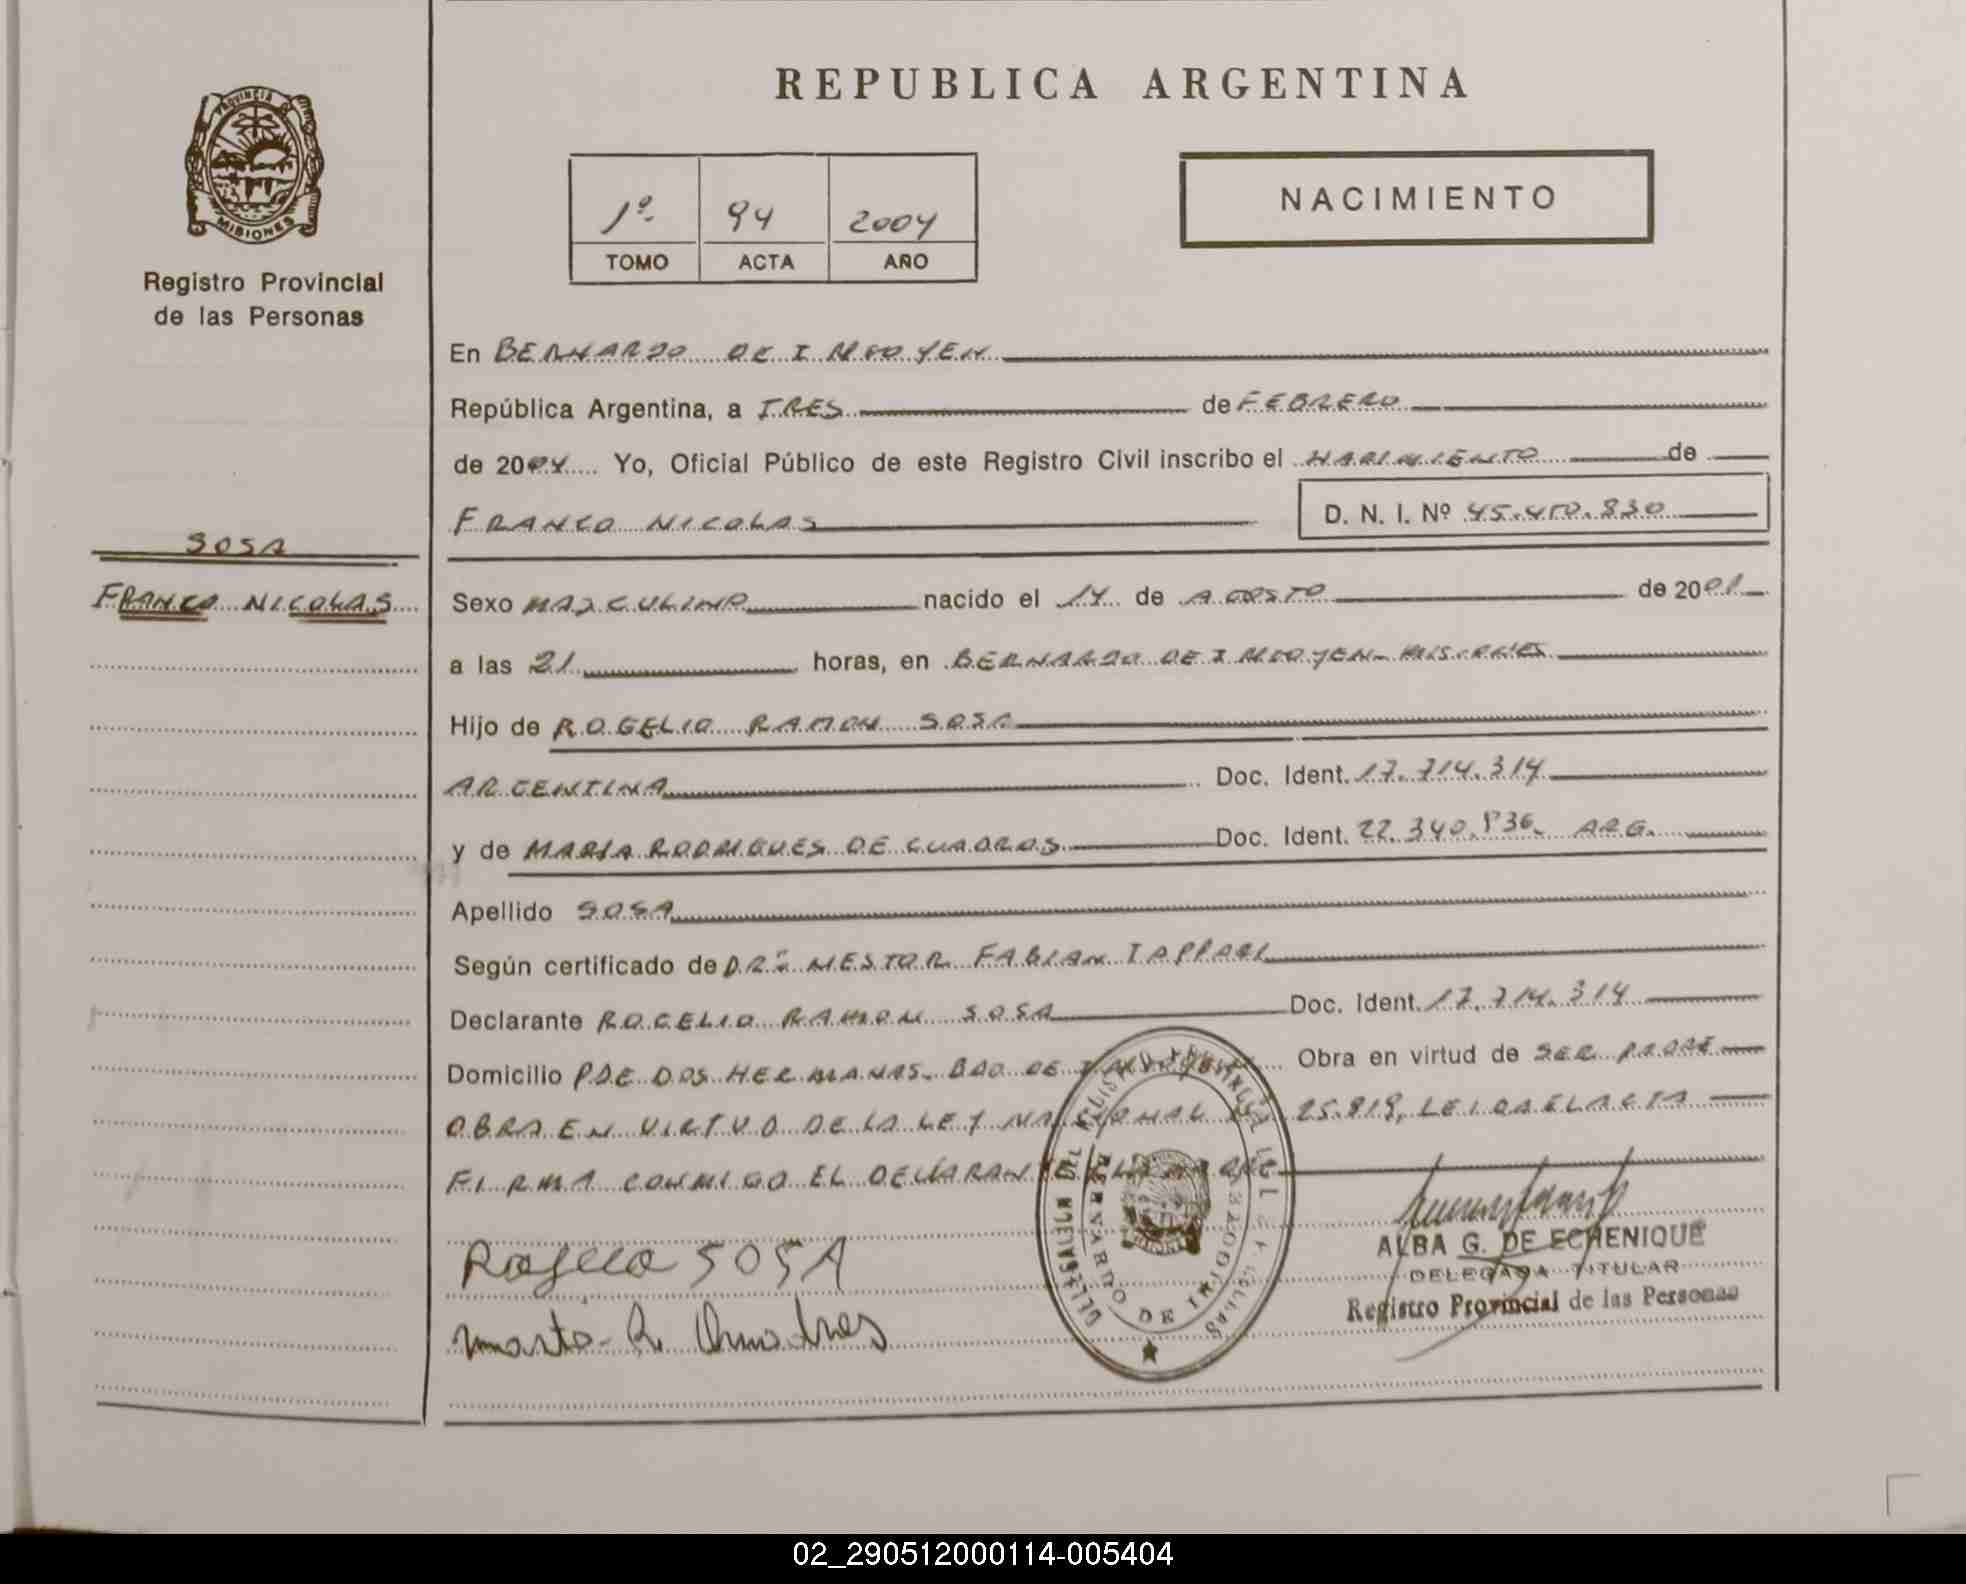 PROVINCIA DE
MISIONES
Registro Provincial
de las Personas
SOSA
FRANCO NICOLAS
REPUBLICA ARGENTINA
1º 94 2004
TOMO ACTA AÑO
NACIMIENTO
En BERNARDO DE IRIGOYEN
República Argentina, a TRES de FEBRERO
de 2004 Yo, Oficial Público de este Registro Civil inscribo el NACIMIENTO de
FRANCO NICOLAS D. N. I. Nº 45.450.830
Sexo MASCULINO nacido el 14 de AGOSTO de 2001
a las 21 horas, en BERNARDO DE IRIGOYEN- MISIONES
Hijo de ROGELIO RAMON SOSA
ARGENTINA Doc. Ident. 17.714.314
y de MARIA RODRIGUES DE CUADROS Doc. Ident. 22.340.836. ARG.
Apellido SOSA
Según certificado de DR. NESTOR FABIAN
Declarante ROGELIO RAMON SOSA Doc. Ident. 17.714.314
Domicilio PJE DOS HERMANAS. BDO DE IRIGOYEN Obra en virtud de SER PADRE
OBRA EN VIRTUD DE LA LEY NACIONAL 25.819, LEIDA EL ACTA
FIRMA CONMIGO EL DECLARANTE Y LA MADRE
Rogelio SOSA
DELEGACION DEL REGISTRO PROVINCIAL DE LAS
BERNARDO DE IRIGOYEN
ALBA G. DE ECHENIQUE
DELEGADA TITULAR
Registro Provincial de las Personas
02_290512000114-005404